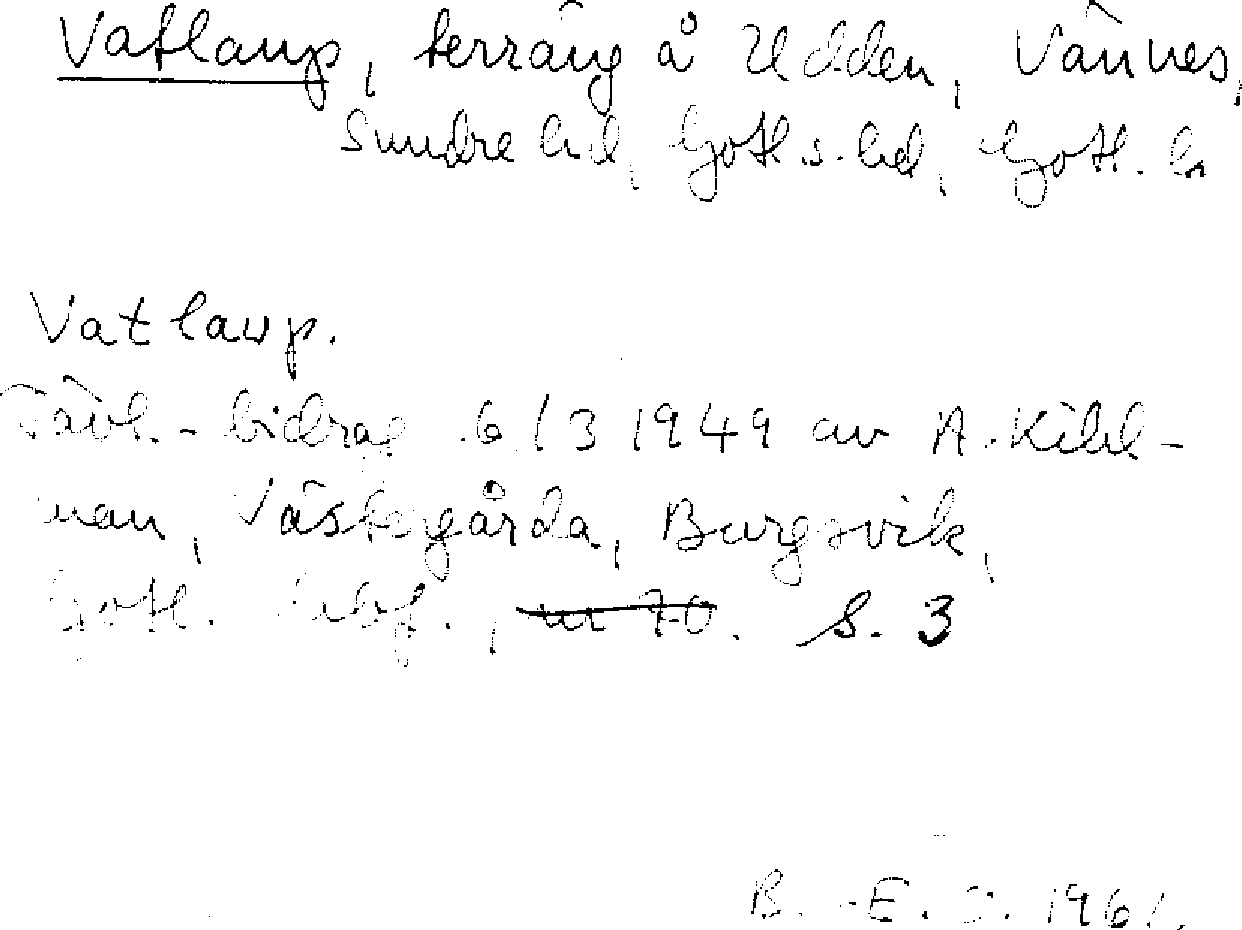 Vatlaup, terräng å Udden, Vännes,
Sundre hd, Gotl. s. hd, Gotl. ln
Vatlaup.
Tävl.-bidrag 6/3 1949 av A. Kihl-
man, Västergårda, Burgsvik,
Gotl. , nr 70. S. 3
B.-E. J. 1961.